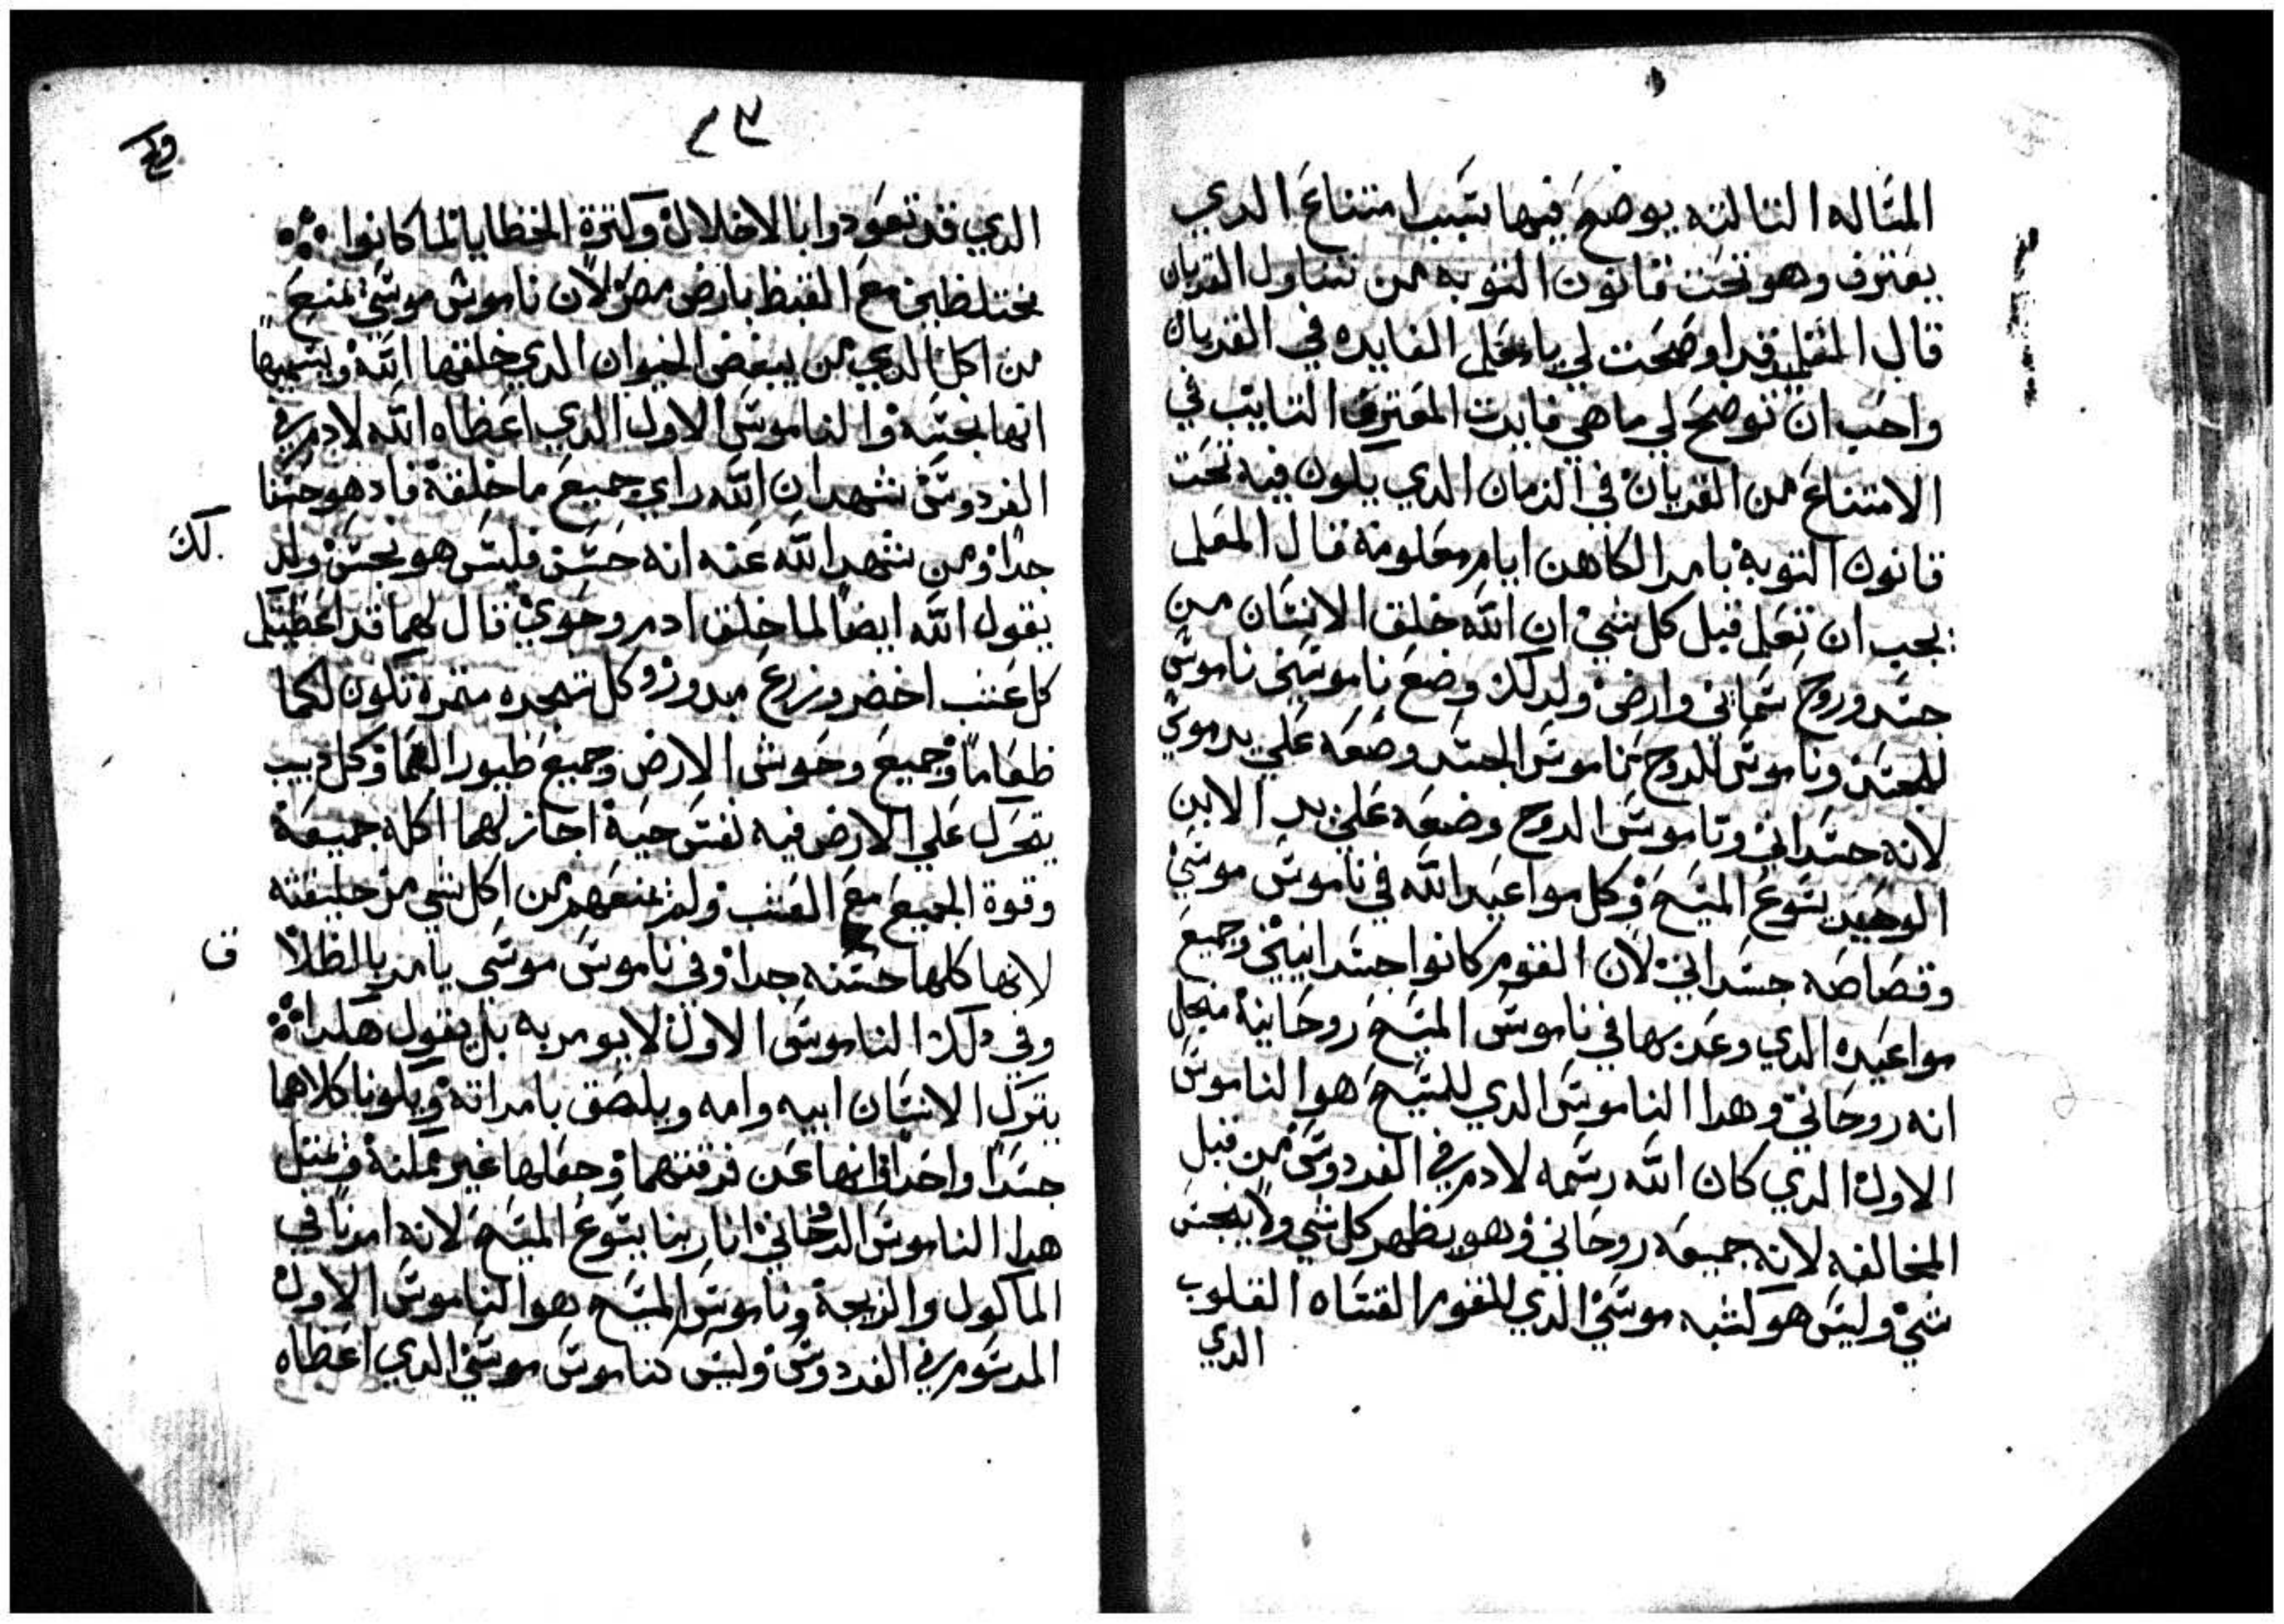 المساله التالته يوضح فيها سبب امتناع الدي
يعترف وهو تحت قانون التوبه من تناول القربان
قال المتعلم قد اوضحت لي يا معلم الفايده في القربان
واحب ان توضح لي ما هي فايدت المعترف التايب في
الامتناع من القربان في الزمان الدي يكون فيه تحت
قانون التوبة بامر الكاهن ايام معلومة قال المعلم
يجب ان تعلم قبل كل شي ان الله خلق الانسان من
جسد وروح سماني وارضي ولدلك وضع ناموسين ناموس
للجسد وناموس للروح فناموس الجسد وضعه علي يد موسي
لانه جسداني وناموس الروح وضعه علي يد الابن
الوحيد يسوع المسيح وكل مواعيد الله في ناموس موسي
وقصاصه جسداني لان القوم كانوا جسدانيين وجميع
مواعيده الدي وعد بها في ناموس المسيح روحانية من اجل
انه روحاني وهدا الناموس الدي للمسيح هو الناموس
الاول الدي كان الله رسمه لادم في الفردوس من قبل
المخالفه لانه جميعه روحاني وهو يطهر كل شي ولا ينجس
شي وليس هو كشبه موسي الدي للقوم القساه القلوب
الدي
٢٣
الدي قد تعودوا بالاخلال وكترة الخطايا لما كانوا
مختلطين مع القبط بارض مصر لان ناموس موسي يمنع
من اكل الدي من بعض الحيوان الدي خلقها الله ويسميها
انها نجسه والناموس الاول الدي اعطاه الله لادم في
الفردوس شهد ان الله راي جميع ما خلقه فادهو حسنا
جدا ومن شهد الله عنه انه حسن فليس هو نجس ولد
لك
يقول الله ايضا لما خلق ادم وحوي قال لهما قد اعطيتكم
كل عشب اخضر وزرع مبدور وكل شجره متمرة تكون لكما
طعاما وجميع وحوش الارض وجميع طيور السما وكل دبيب
يتحرك علي الارض فيه نفس حية اجاز لهما اكله جميعه
وقوة الجميع مع العشب ولم يمنعهم من اكل شي من خليقته
لانها كلها حسنه جدا وفي ناموس موسي يامر بالطلا
ق
وفي دلك الناموس الاول لا يومر به بل يقول هكدا
يترك الانسان ابيه وامه ويلصق بامراته ويكونا كلاهما
جسدا واحدا فنهاهما عن فرقتهما وجعلها غير ممكنة وبمتل
هدا الناموس الروحاني اتا ربنا يسوع المسيح لانه امرنا في
الماكول والزيجة وناموس المسيح هو الناموس الاول
المرسوم في الفردوس وليس كناموس موسي الدي اعطاه